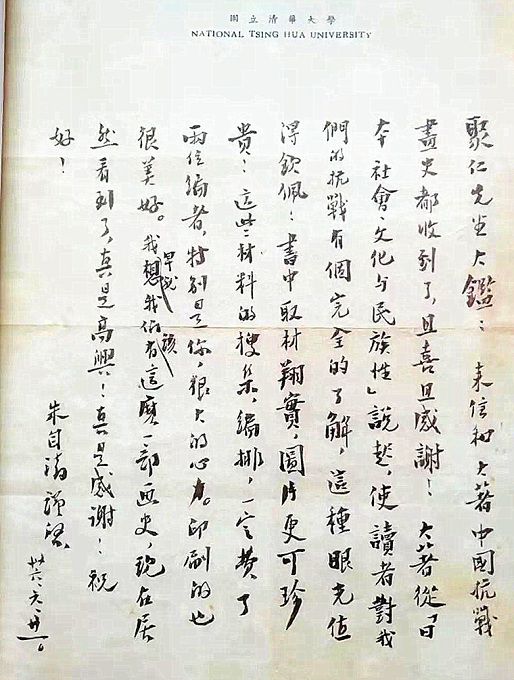 國立清華大學
NATIONAL TSING HUA UNIVERSITY
聚仁先生大鑑：來信和大著中國抗戰
畫史都收到了，且喜且感謝！大著從「日
本社會文化与民族性」說起，使讀者對我
們的抗戰有個完全的了解，這種眼光值
得欽佩！書中取材翔實，圖片更可珍
貴！這些材料的搜集，編排，一定費了
兩位編者，特別是你，很大的心力。印刷的也
很美好。我想我們早就該有這麼一部画史，現在居
然看到了，真是高興！真是感謝！祝
好！
朱自清謹啓
卅六，六，廿一。